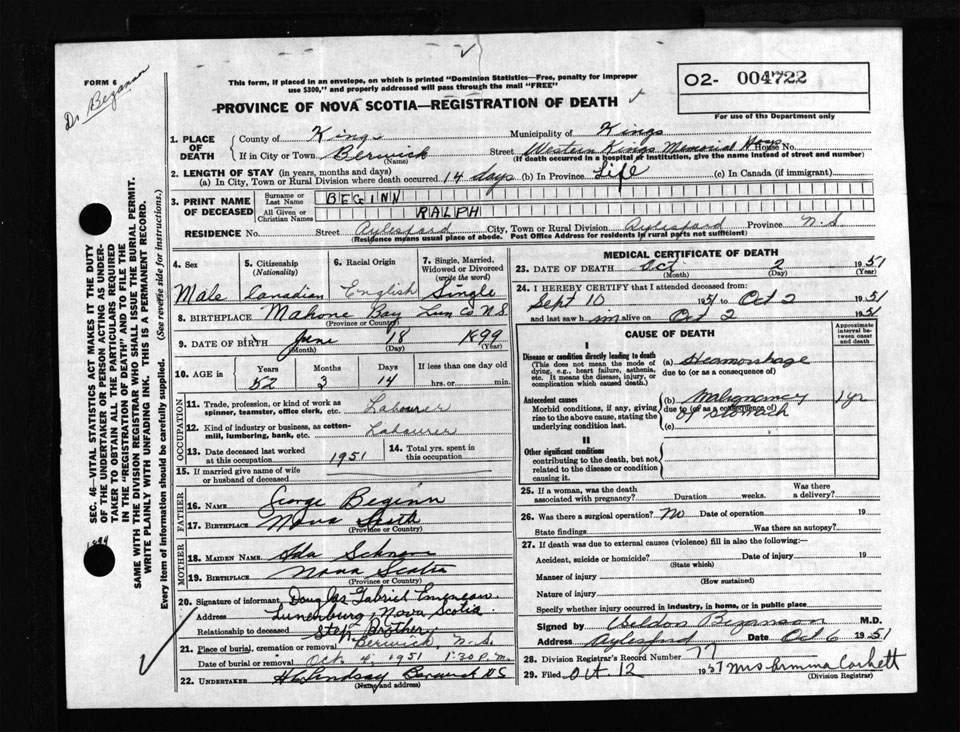 FORM 6
Dr Bezanson
This form, if placed in an envelope, on which is printed "Dominion Statistics—Free, penalty for improper
use $300," and properly addressed will pass through the mail "FREE"
PROVINCE OF NOVA SCOTIA—REGISTRATION OF DEATH
O2- 004722
For use of the Department only
1. PLACE OF DEATH County of Kings Municipality of Kings
If in City or Town Berwick (Name) Street Western Kings Memorial Hosp House No.
(If death occurred in a hospital or institution, give the name instead of street and number)
2. LENGTH OF STAY (in years, months and days)
(a) In City, Town or Rural Division where death occurred 14 days (b) In Province Life (c) In Canada (if immigrant)
3. PRINT NAME OF DECEASED Surname or Last Name BEGINN
All Given or Christian Names RALPH
RESIDENCE No. Street Aylesford City, Town or Rural Division Aylesford Province N.S
(Residence means usual place of abode. Post Office Address for residents in rural parts not sufficient)
4. Sex 5. Citizenship (Nationality) 6. Racial Origin 7. Single, Married, Widowed or Divorced (write the word)
Male Canadian English Single
8. BIRTHPLACE Mahone Bay Lun Co N.S.
(Province or Country)
9. DATE OF BIRTH June 18 1899
(Month) (Day) (Year)
10. AGE Years Months Days If less than one day old
52 3 14 hrs. or min.
OCCUPATION
11. Trade, profession, or kind of work as spinner, teamster, office clerk, etc. Labourer
12. Kind of industry or business, as cotton-mill, lumbering, bank, etc. Labourer
13. Date deceased last worked at this occupation 1951 14. Total yrs. spent in this occupation
15. If married give name of wife or husband of deceased
FATHER
16. NAME George Beginn
17. BIRTHPLACE Nova Scotia
(Province or Country)
MOTHER
18. MAIDEN NAME Ada
19. BIRTHPLACE Nova Scotia
(Province or Country)
20. Signature of informant Douglas Gabriel
Address Lunenburg, Nova Scotia
Relationship to deceased Step Brother
21. Place of burial, cremation or removal Berwick, N.S.
Date of burial or removal Oct. 4, 1951 1:30 P.M.
22. UNDERTAKER Lindsay Berwick N S
(Name and address)
MEDICAL CERTIFICATE OF DEATH
23. DATE OF DEATH Oct 2 1951
(Month) (Day) (Year)
24. I HEREBY CERTIFY that I attended deceased from:
Sept 10 1951 to Oct 2 1951
and last saw him alive on Oct 2 1951
CAUSE OF DEATH
Approximate interval between onset and death
I
Disease or condition directly leading to death
(This does not mean the mode of dying, e.g., heart failure, asthenia, etc. It means the disease, injury, or complication which caused death.)
(a) Heamorrhage
due to (or as a consequence of)
Antecedent causes
Morbid conditions, if any, giving rise to the above cause, stating the underlying condition last.
(b) Malignency 1 yr
due to (or as a consequence of)
of stomach
(c)
II
Other significant conditions
contributing to the death, but not related to the disease or condition causing it.
25. If a woman, was the death associated with pregnancy? Duration weeks. Was there a delivery?
26. Was there a surgical operation? No Date of operation 19
State findings Was there an autopsy?
27. If death was due to external causes (violence) fill in also the following:—
Accident, suicide or homicide? Date of injury 19
(State which)
Manner of injury
(How sustained)
Nature of injury
Specify whether injury occurred in industry, in home, or in public place
Signed by Weldon Bezanson M.D.
Address Aylesford Date Oct 6 1951
28. Division Registrar's Record Number 77
29. Filed Oct. 12 1951 Mrs Ermina Corbett
(Division Registrar)
SEC. 46—VITAL STATISTICS ACT MAKES IT THE DUTY
OF THE UNDERTAKER OR PERSON ACTING AS UNDER-
TAKER TO OBTAIN ALL THE PARTICULARS REQUIRED
IN THE "REGISTRATION OF DEATH" AND TO FILE THE
SAME WITH THE DIVISION REGISTRAR WHO SHALL ISSUE THE BURIAL PERMIT.
WRITE PLAINLY WITH UNFADING INK. THIS IS A PERMANENT RECORD.
Every item of information should be carefully supplied. (See reverse side for instructions.)